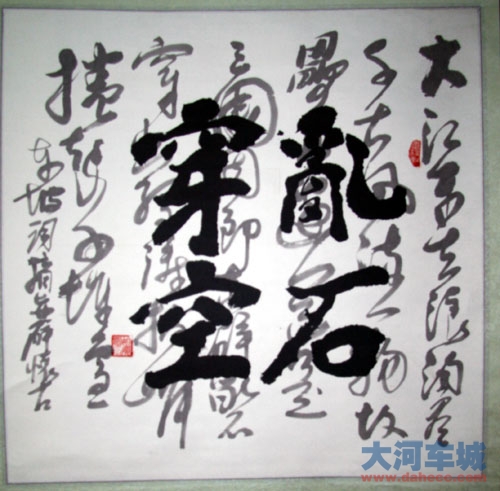 亂石
穿空
大江東去浪淘盡
千古風流人物故
壘西邊人道是
三國周郎赤壁亂石
穿空驚濤拍岸
捲起千堆雪
東坡詞摘赤壁懷古
大河车城